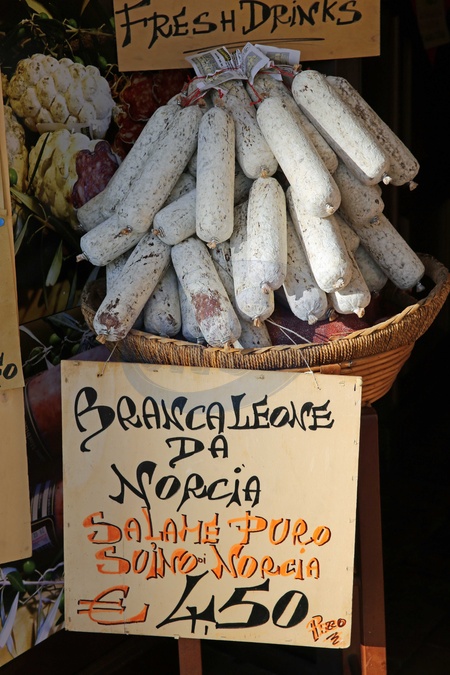 FRESH DRINKS
BRANCALEONE
DA
NORCIA
SALAME PURO
SUINO di NORCIA
€ 4,50